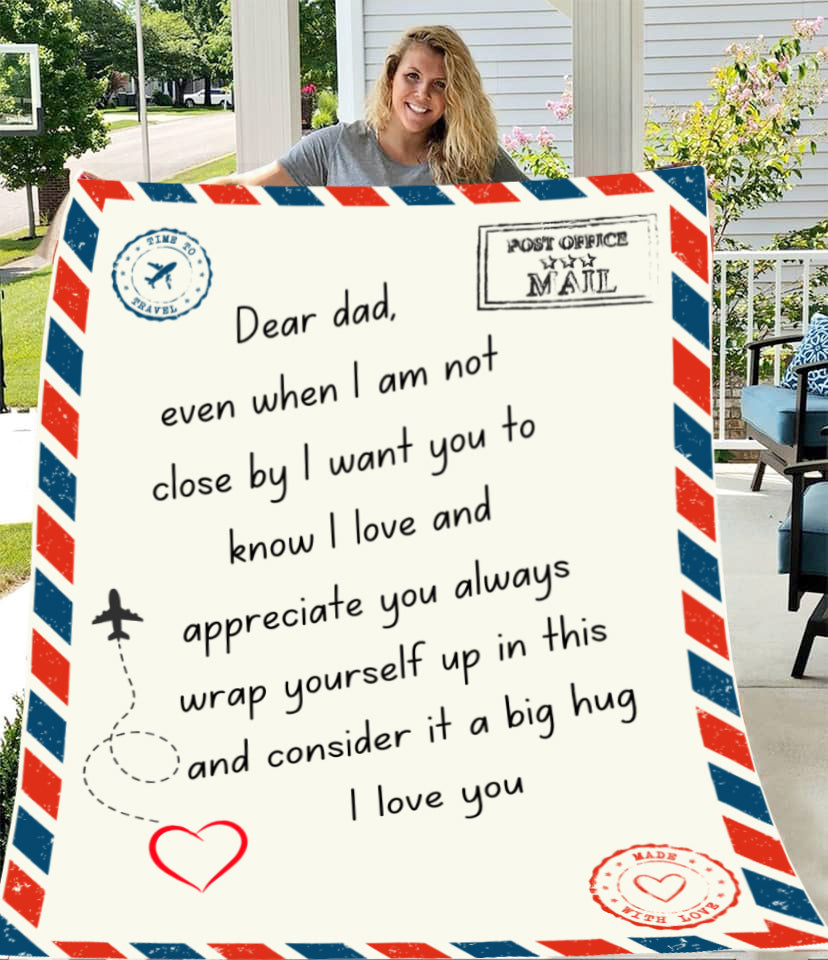 TIME TO
TRAVEL
POST OFFICE
MAIL
Dear dad,
even when I am not
close by I want you to
know I love and
appreciate you always
wrap yourself up in this
and consider it a big hug
I love you
MADE
WITH LOVE